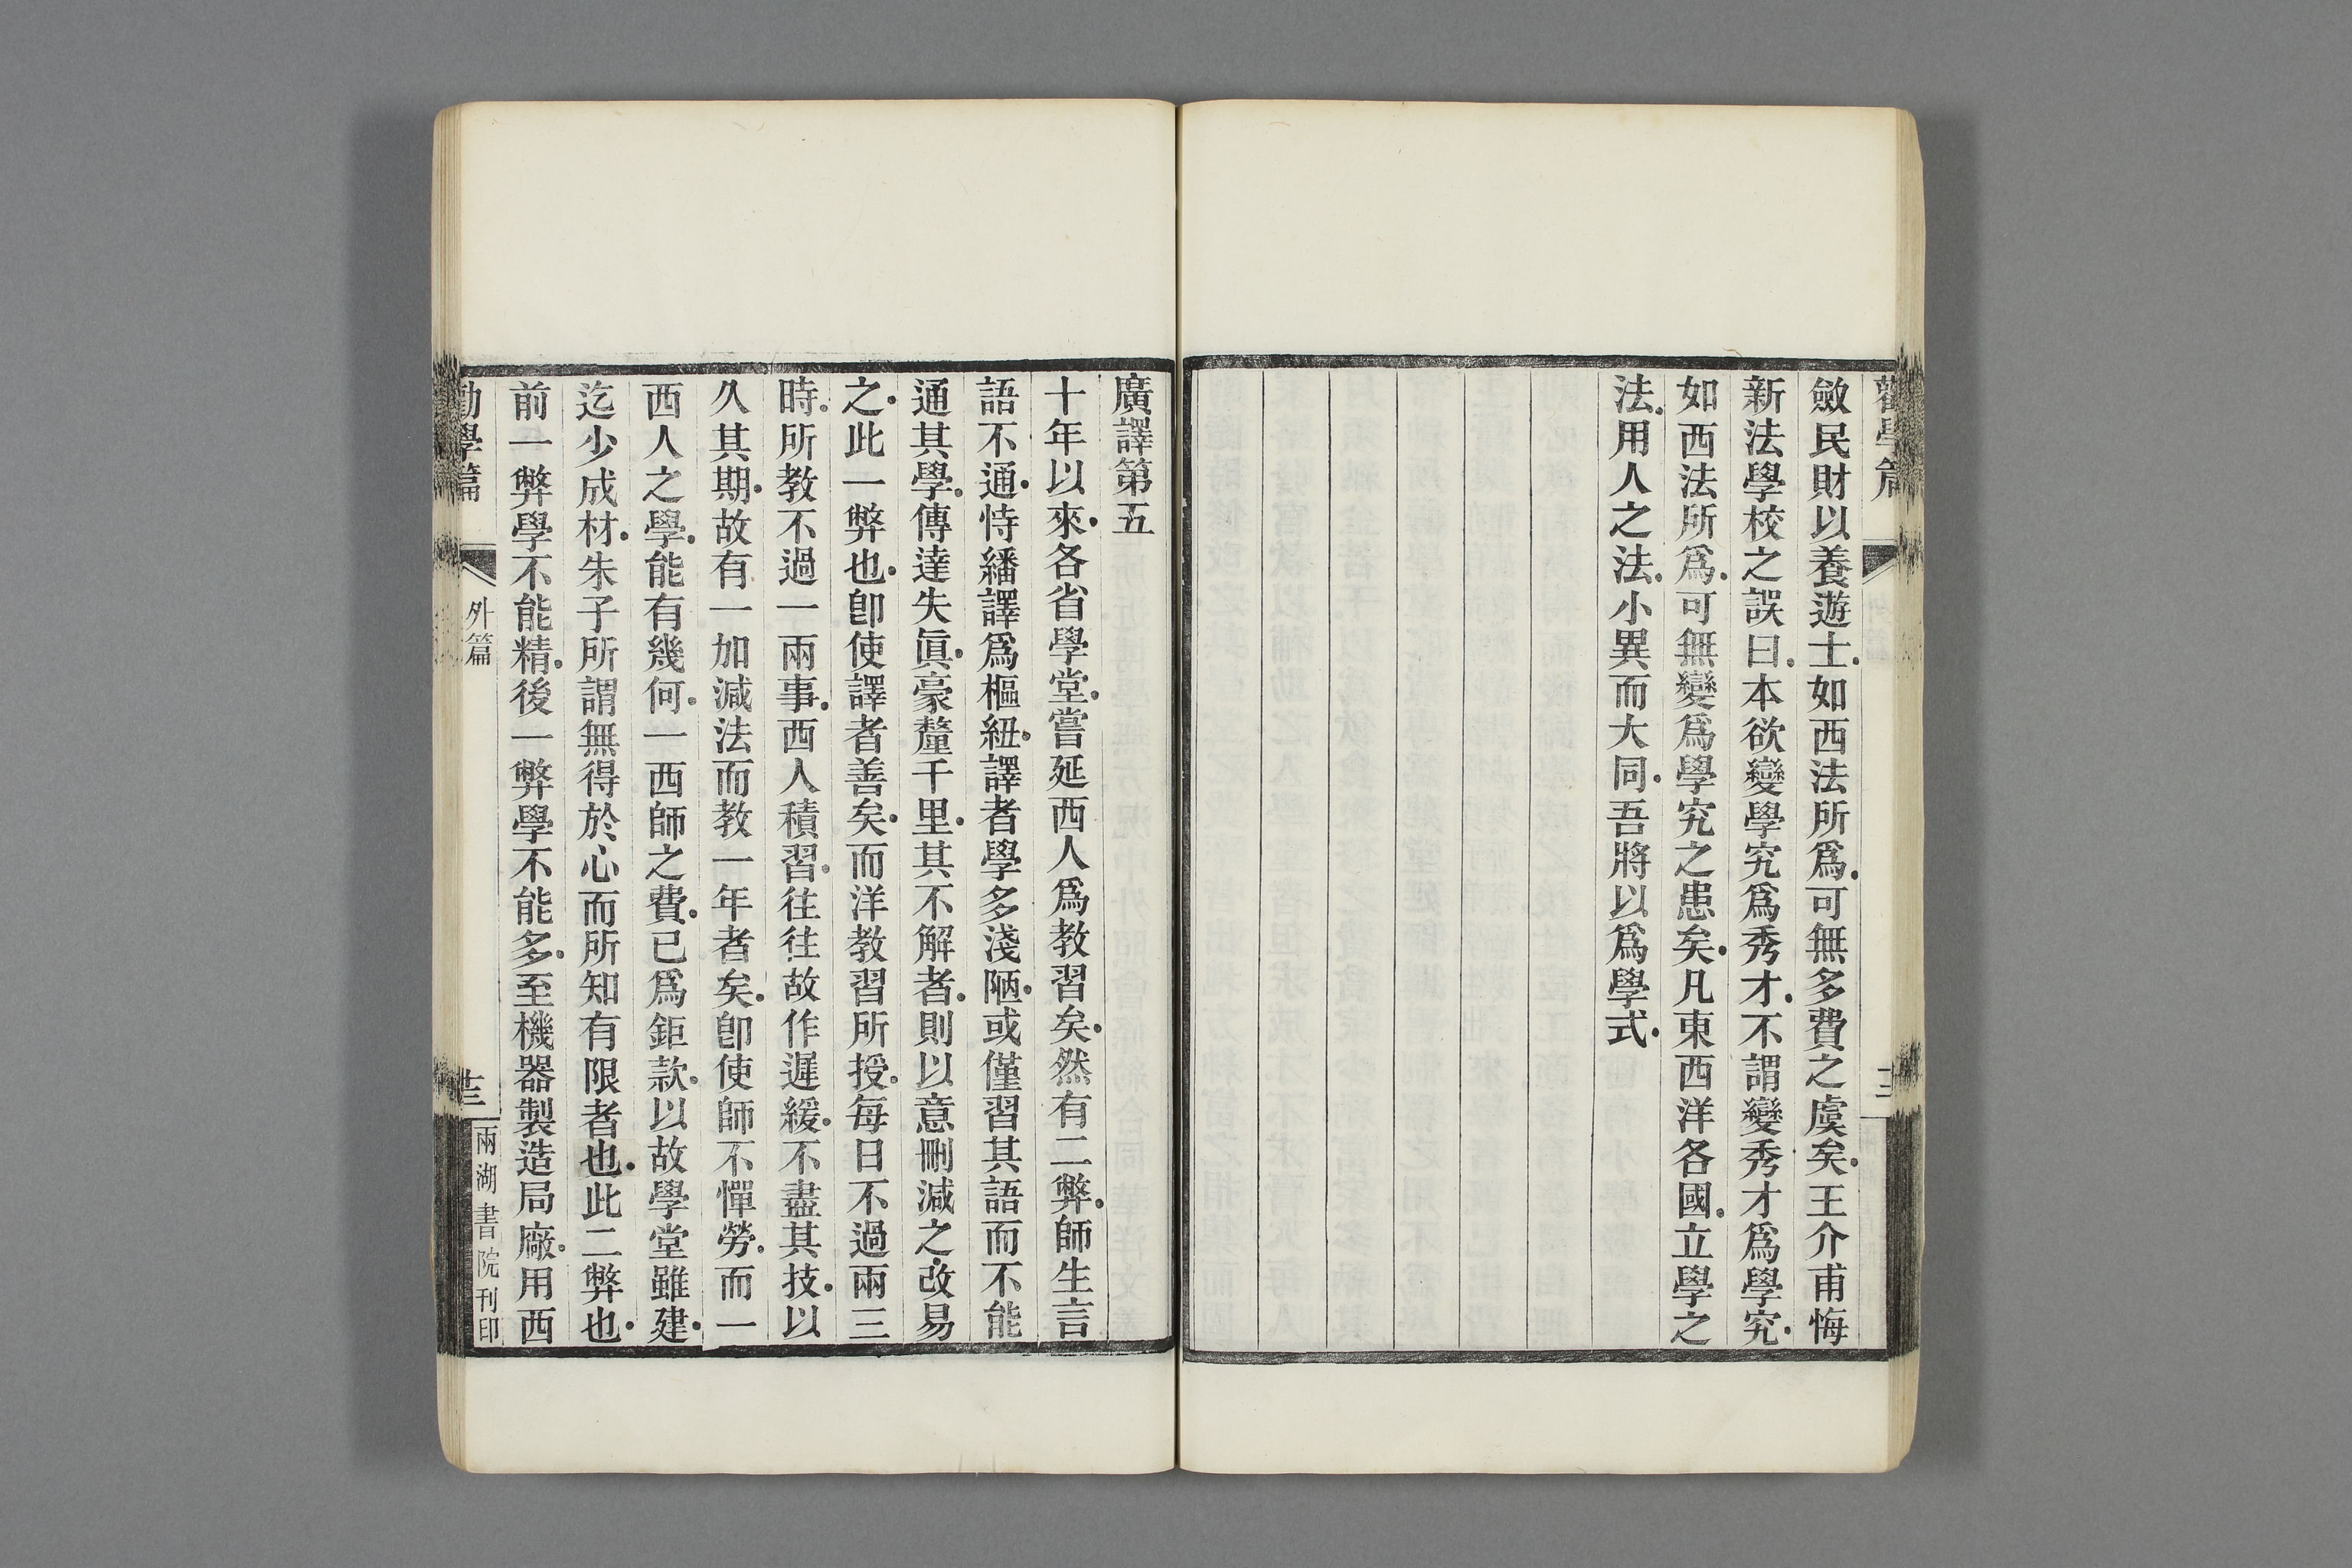 勸學篇
斂民財以養遊士.如西法所爲.可無多費之虞矣.王介甫悔
新法學校之誤曰.本欲變學究爲秀才.不謂變秀才爲學究.
如西法所爲.可無變爲學究之患矣.凡東西洋各國.立學之
法.用人之法.小異而大同.吾將以爲學式.
廣譯第五
十年以來.各省學堂.嘗延西人爲教習矣.然有二弊.師生言
語不通.恃繙譯爲樞紐.譯者學多淺陋.或僅習其語而不能
通其學.傳達失眞.豪釐千里.其不解者.則以意刪減之.改易
之.此一弊也.卽使譯者善矣.而洋教習所授.每日不過兩三
時.所教不過一兩事.西人積習.往往故作遲緩.不盡其技.以
久其期.故有一加減法而教一年者矣.卽使師不憚勞.而一
西人之學.能有幾何.一西師之費.已爲鉅款.以故學堂雖建.
迄少成材.朱子所謂無得於心而所知有限者也.此二弊也.
前一弊學不能精.後一弊學不能多.至機器製造局廠.用西
勸學篇
外篇
兩湖書院刊印